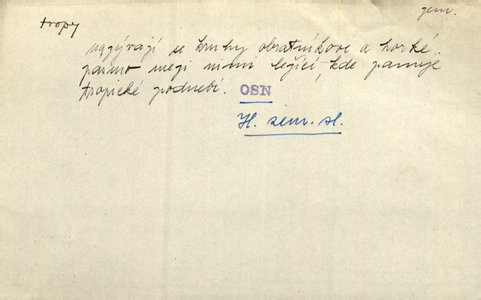 zem.
tropy
nazývají se kruhy obratníkové a horké
pásmo mezi nimi ležící, kde panuje
tropické podnebí. OSN
Hl. zem. sl.